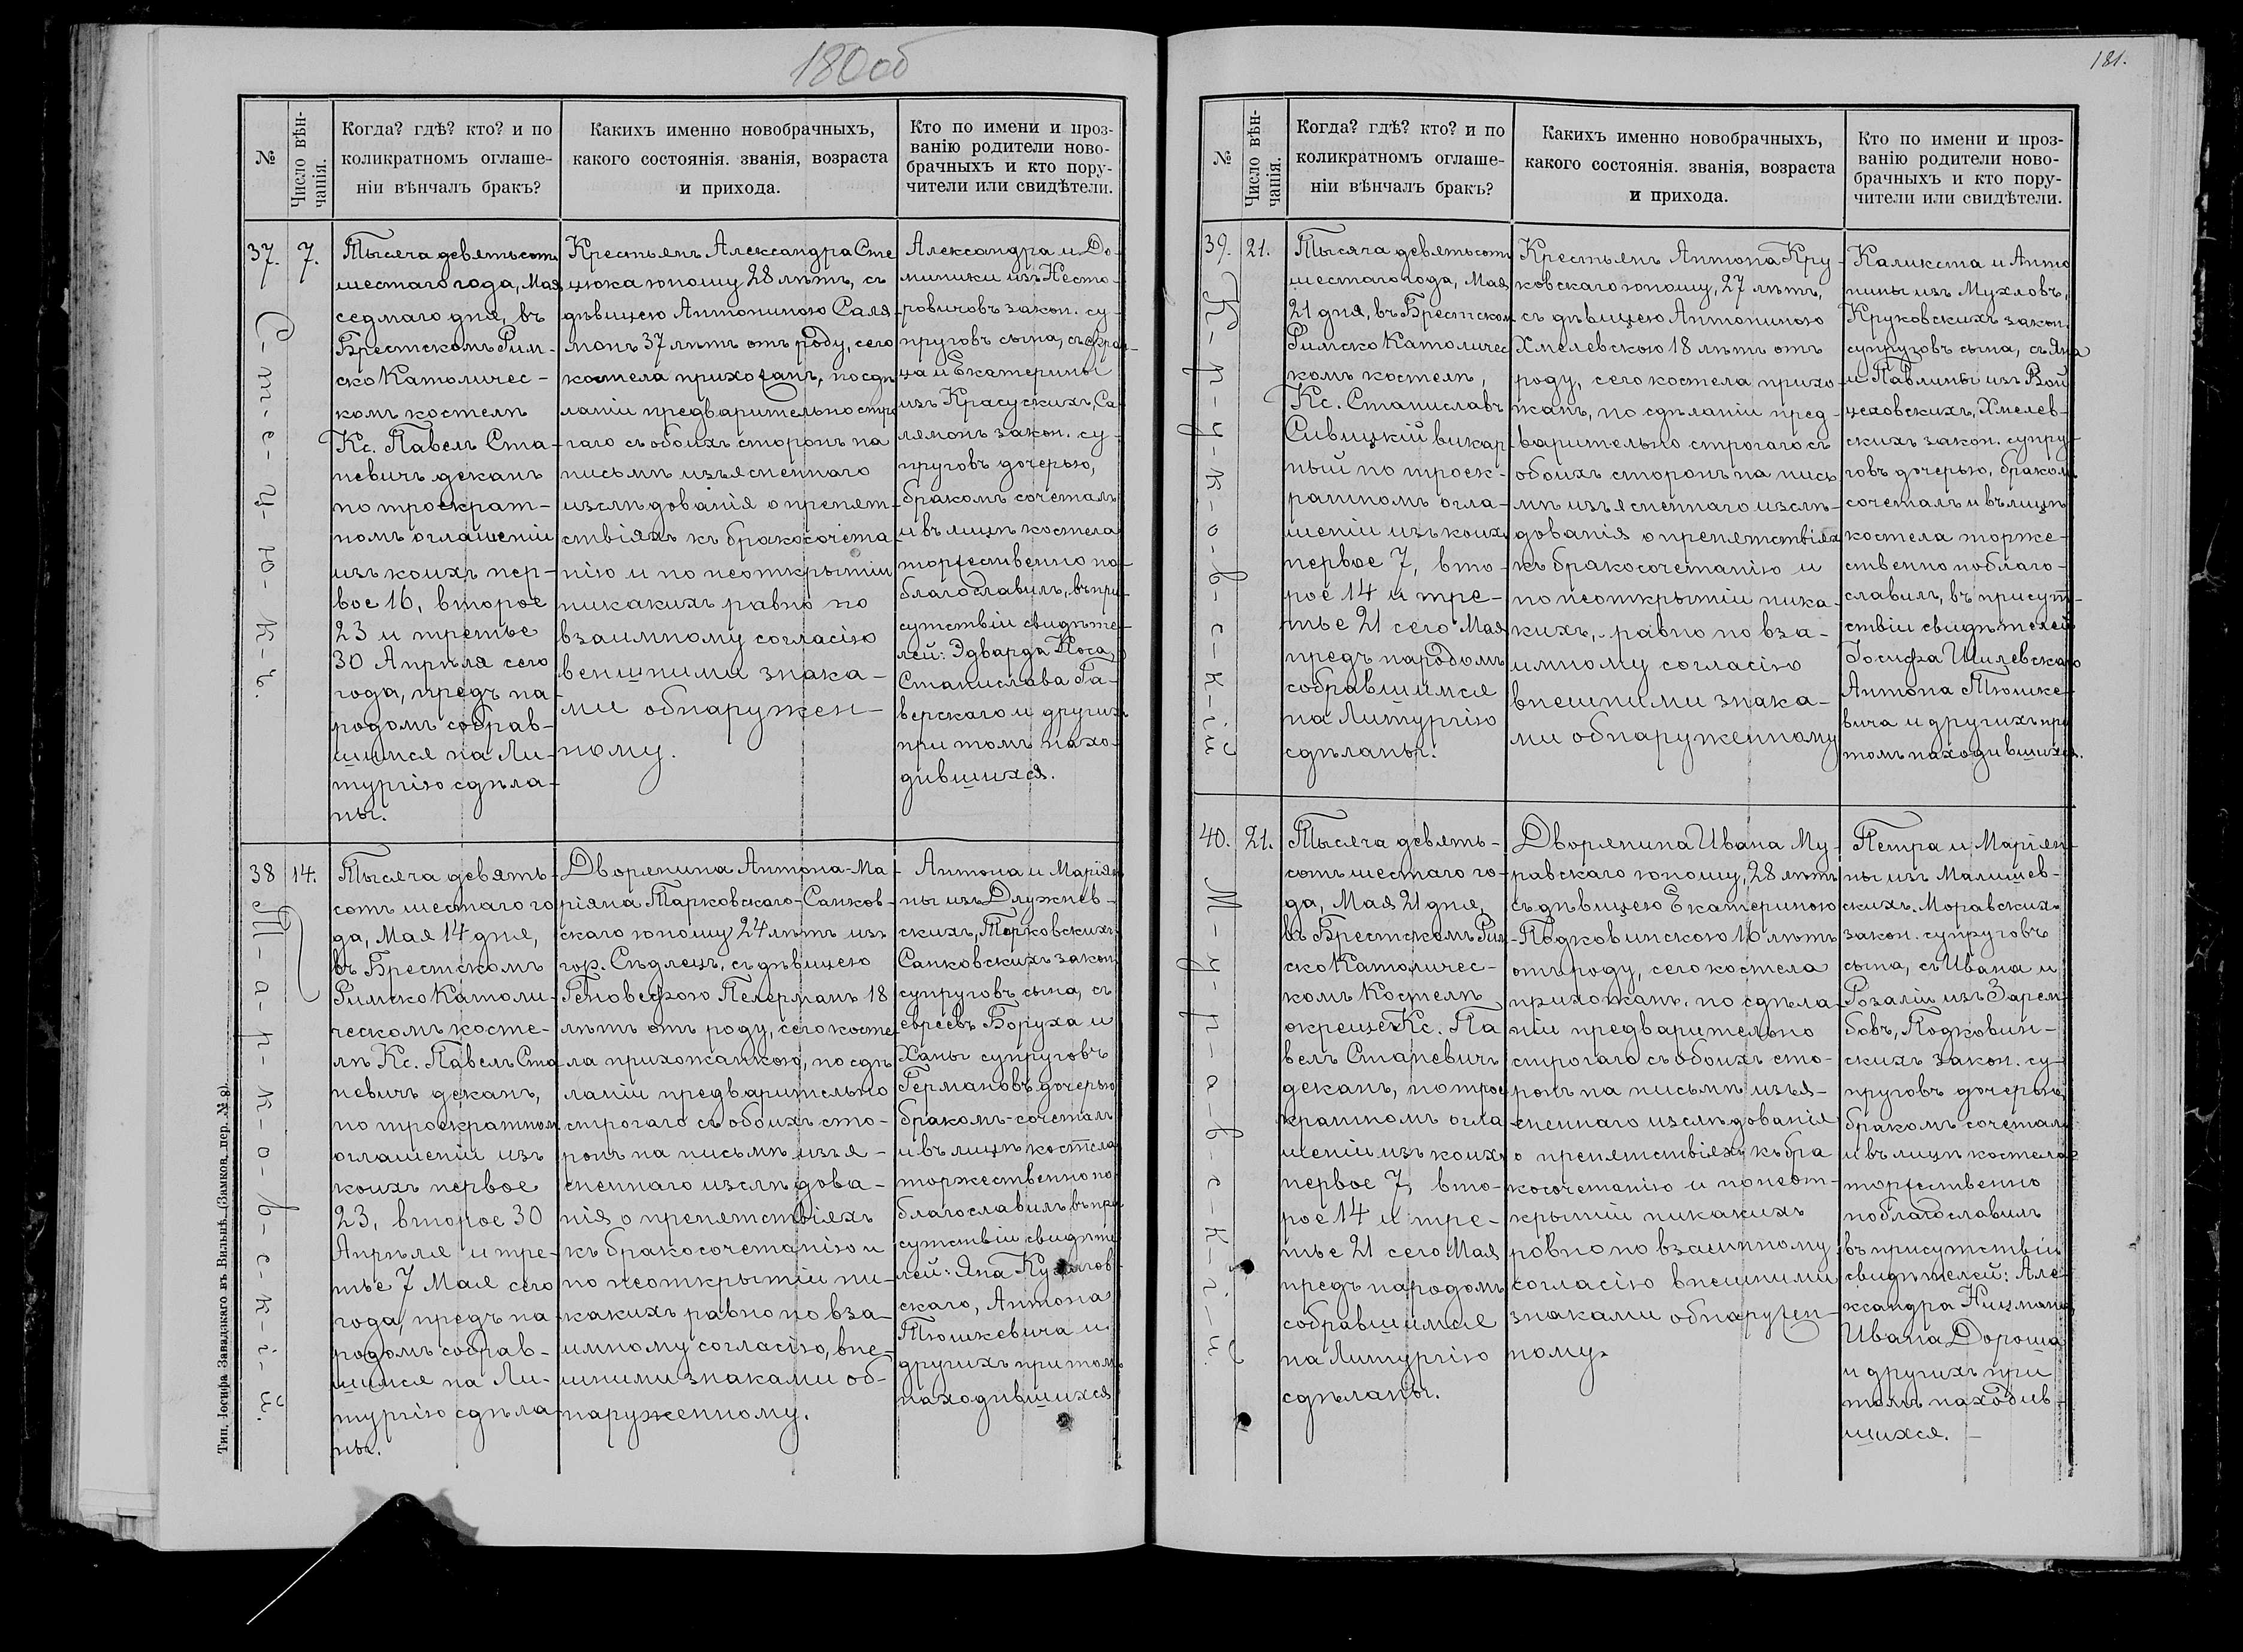 180 об
№
Число вѣн-
чанія.
Когда? гдѣ? кто? и по
коликратномъ оглаше-
ніи вѣнчалъ бракъ?
Какихъ именно новобрачныхъ,
какого состоянія. званія, возраста
и прихода.
Кто по имени и проз-
ванію родители ново-
брачныхъ и кто пору-
чители или свидѣтели.
37.
7.
С-т-е-ц-ю-к-ъ.
Тысяча девятьсотъ
шестаго года, Мая
седмаго дня, въ
Брестскомъ Рим-
ско Католичес-
комъ костелѣ
Кс. Павелъ Ста-
невичъ деканъ
по троекрат-
номъ оглашеніи
изъ коихъ пер-
вое 16, второе
23 и третье
30 Апрѣля сего
года, предъ на-
родомъ собрав-
шимся на Ли-
тургію сдѣла-
ны.
Крестьянъ Александра Сте
цюка юношу 28 лѣтъ, съ
дѣвицею Антониною Саля-
монъ 37 лѣтъ отъ роду, сего
костела прихожанъ, по сдѣ
ланіи предварительно стро
гаго съ обоихъ сторонъ на
письмѣ изъясненнаго
изслѣдованія о препят-
ствіяхъ къ бракосочета
нію и по неоткрытіи
никакихъ равно по
взаимному согласію
венѣшними знака-
ми обнаружен-
ному.
Александра и До-
миники изъ Несто-
ровичовъ закон. су-
пруговъ сына, съ Фран-
ца и Екатерины
изъ Красускихъ, Са-
лямонъ закон. су-
пруговъ дочерью,
бракомъ сочеталъ
и въ лицѣ костела
торжественно по-
благославилъ, въ при-
сутствіи свидѣте-
лей: Эдварда Коса,
Станислава Га-
верскаго и другихъ
при томъ нахо-
дившихся.
38
14.
Т-а-р-к-о-в-с-к-і-й.
Тысяча девять-
сотъ шестаго го
да, Мая 14 дня,
въ Брестскомъ
Римско Католи-
ческомъ косте-
лѣ Кс. Павелъ Ста
невичъ деканъ,
по троекратном
оглашеніи изъ
коихъ первое
23, второе 30
Апрѣля и тре-
тье 7 Мая сего
года, предъ на
родомъ собрав-
шимся на Ли-
тургію сдѣла
ны.
Дворянина Антона-Ма-
ріяна Тарковскаго-Санков-
скаго юношу 24 лѣтъ изъ
гор. Сѣдлецъ, съ дѣвицею
Геновефою Пелерманъ 18
лѣтъ отъ роду, сего косте
ла прихожанкою, по сдѣ
ланіи предварительно
строгаго съ обоихъ сто-
ронъ на письмѣ изъя-
сненнаго изслѣдова-
нія о препятствіяхъ
къ бракосочетанію и
по неоткрытіи ни-
какихъ равно по вза-
имному согласію, внѣ-
шними знаками об-
наруженному.
Антона и Марія
ны изъ Длужнев-
скихъ, Тарковскихъ
Санковскихъ закон.
супруговъ сына, съ
евреевъ Боруха и
Ханы супруговъ
Германовъ дочерью
бракомъ сочеталъ
и въ лицѣ костела
торжественно по-
благославилъ въ при
сутствіи свидѣте
лей: Яна
скаго, Антона
Тюшкевича и
другихъ при томъ
находившихся
Тип. Іосифа Завадзкаго въ Вильнѣ. (Замков. пер. № 8)
181.
№
Число вѣн-
чанія.
Когда? гдѣ? кто? и по
коликратномъ оглаше-
ніи вѣнчалъ бракъ?
Какихъ именно новобрачныхъ,
какого состоянія. званія, возраста
и прихода.
Кто по имени и проз-
ванію родители ново-
брачныхъ и кто пору-
чители или свидѣтели.
39.
21.
К-р-у-к-о-в-с-к-ій
Тысяча девятьсотъ
шестаго года, Мая
21 дня, въ Брестском
Римско Католичес
комъ костелѣ,
Кс. Станиславъ
Сивицкій викар
ный по троек-
ратномъ огла-
шеніи изъ коихъ
первое 7, вто-
рое 14 и тре-
тье 21 сего Мая
предъ народомъ
собравшимся
на Литургію
сдѣланы.
Крестьянъ Антона Кру-
ковскаго юношу, 27 лѣтъ,
съ дѣвицею Антониною
Хмелевскою 18 лѣтъ отъ
роду, сего костела прихо-
жанъ, по сдѣланіи пред-
варительно строгаго съ
обоихъ сторонъ на пись
мѣ изъясненнаго изслѣ-
дованія о препятствіяхъ
къ бракосочетанію и
по неоткрытіи ника-
кихъ, равно по вза-
имному согласію
внешними знака-
ми обнаруженному
Каликста и Анто
нины изъ Мухловъ,
Круковскихъ закон.
супруговъ сына, съ Яна
и Павлины изъ Вой
цеховскихъ, Хмелев-
скихъ закон. супру-
говъ дочерью, бракомъ
сочеталъ и въ лицѣ
костела торже-
ственно поблаго-
славилъ, въ присут-
ствіи свидѣтелей
Іосифа Шилевскаго
Антона Тюшке-
вича и другихъ при
томъ находившихся.
40.
21.
М-у-р-а-в-с-к-і-й.
Тысяча девять-
сотъ шестаго го-
да, Мая 21 дня,
въ Брестскомъ Рим-
ско Католичес-
комъ Костелѣ
окрещ. Кс. Па
велъ Станевичъ
деканъ, по трое
кратномъ огла
шеніи изъ коихъ
первое 7, вто-
рое 14 и тре-
тье 21 сего Мая
предъ народомъ
собравшимся
на Литургію
сдѣланы.
Дворянина Ивана Му-
равскаго юношу, 28 лѣтъ
съ дѣвицею Екатериною
Подковинскою 16 лѣтъ
отъ роду, сего костела
прихожанъ, по сдѣла-
ніи предварительно
строгаго съ обоихъ сто-
ронъ на письмѣ изъя-
сненнаго изслѣдованія
о препятствіяхъ къ бра
косочетанію и по неот-
крытіи никакихъ
ровно по взаимному
согласію внешними
знаками обнаружен-
ному.
Петра и Маріян-
ны изъ Малишев-
скихъ. Моравскихъ
закон. супруговъ
сына, съ Ивана и
Розаліи изъ Зарем-
бовъ, Подковин-
скихъ закон. су-
пруговъ дочерью,
бракомъ сочеталъ
и въ лицѣ костела
торжественно
поблагославилъ
въ присутствіи
свидѣтелей: Але-
ксандра Ницманъ,
Ивана Дороша
и другихъ при
томъ находив-
шихся.